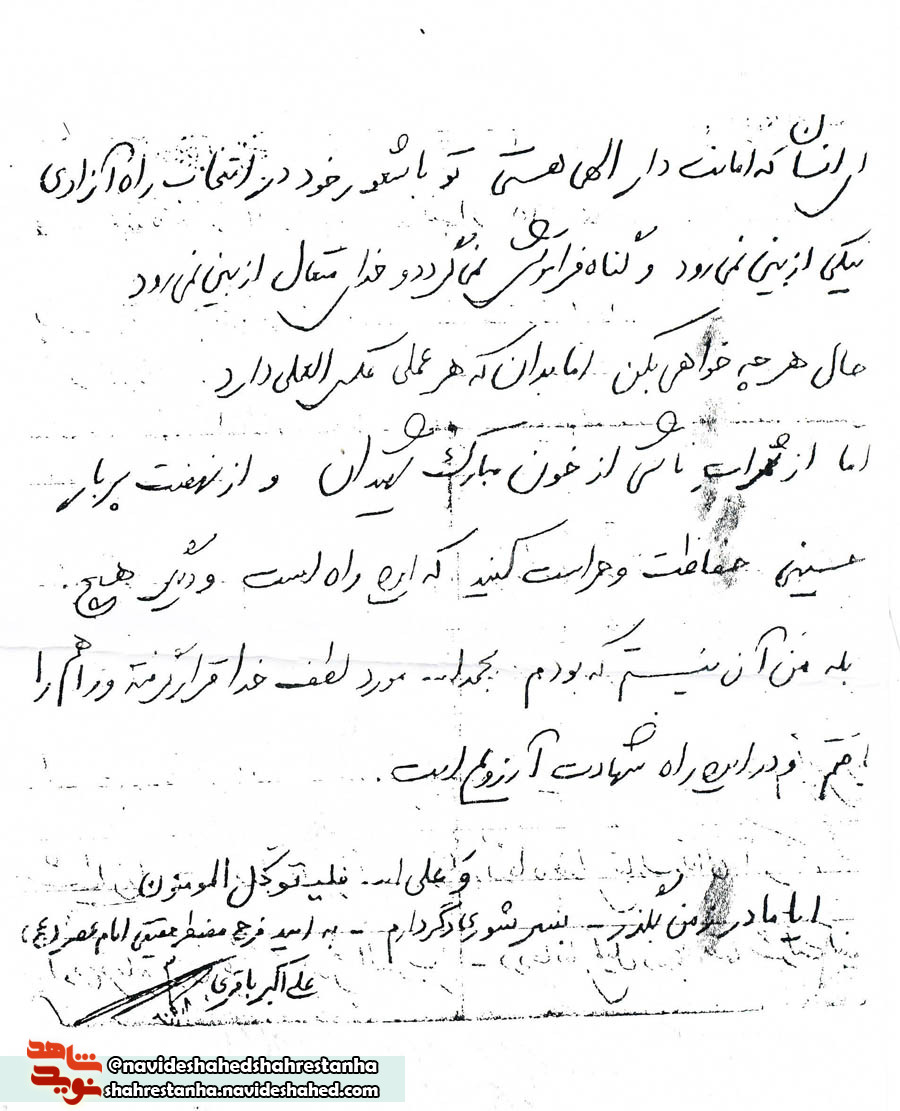 ای انسان که امانت دار الهی هستی تو با شعور خود در انتخاب راه آزادی
نیکی از بین نمی رود و گناه فراموش نمی گردد و خدای متعال از بین نمی رود
حال هر چه خواهی بکن اما بدان که هر عملی عکس العملی دارد
اما از ثمرات ناشی از خون مبارک شهیدان و از نهضت پر بار
حسینی حفاظت و حراست کنید که این راه است و دیگر هیچ.
بله من آن نیستم که بودم بحمدا... مورد لطف خدا قرار گرفته و راهم را
یافتم و در این راه شهادت آرزویم است.
و علی ا... فلیتوکل المومنون
ایا مادر ز من بگذر - بسر شوری دگر دارم - به امید فرج منتظر حقیقی امام عصر (عج)
علی اکبر باقری
شاهد
نوید
©navideshahedshahrestanha
shahrestanha.navideshahed.com